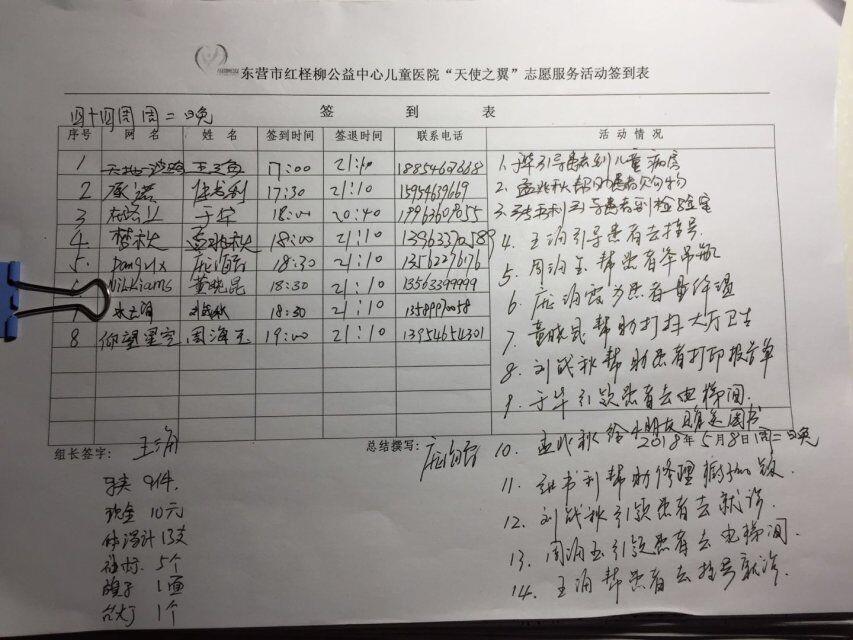 东营市红柽柳公益中心儿童医院“天使之翼”志愿服务活动签到表
签 到 表
四十四周 周二 晚
序号 网 名 姓 名 签到时间 签退时间 联系电话 活 动 情 况
1 王海 17:00 21:10
2 承诺 17:30 21:10 15954639669
3 于华 18:00 20:40
4. 梦秋 孟兆秋 18:00 21:10 13963370589
5. 庞海霞 18:30 21:10 13562276176
6 Nikkiams 黄晓昆 18:30 21:10 13563399999
18:30 21:10
8 仰望星空 周海玉 19:00 21:10 13954654301
1. 于华引导患者到儿童病房
2. 孟兆秋帮助患者
3. 引导患者到检验室
4. 王海引导患者去挂号.
5. 周海玉帮患者举吊瓶
6. 庞海霞为患者量体温
7. 黄晓昆帮助打扫大厅卫生
8. 刘成秋帮助患者打印报告单
9. 于华引领患者去电梯间.
10. 孟兆秋给小朋友 图书
2018年5月8日 周二 晚
11. 书利帮助修理
12. 刘成秋引领患者去就诊.
13. 周海玉引领患者去电梯间
14. 王海帮患者去挂号就诊.
组长签字： 王海
总结撰写： 庞海霞
马夹 9件.
现金 10元
体温计 13支
袖标 5个
1面
台灯 1个